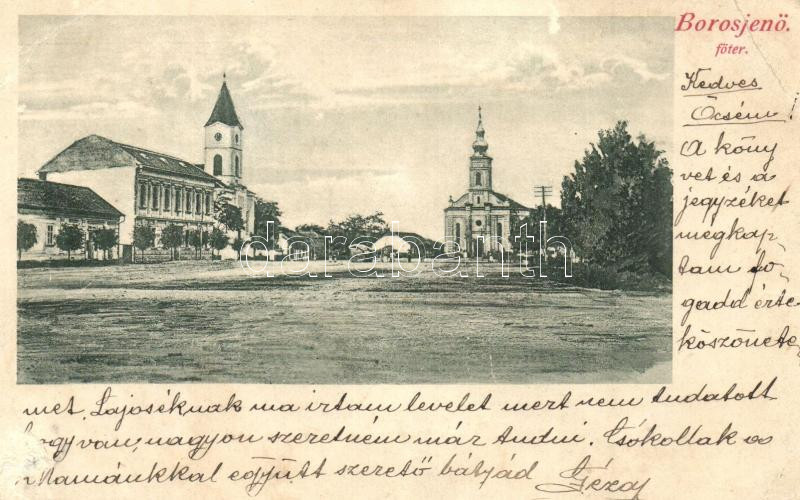 Borosjenö.
főter.
Kedves
Öcsém!
A köny
vet és a
jegyzéket
megkap
tam fo
gadd érte
köszönete
met. Lajoséknak ma irtam levelet mert nem tudatott
hogy van, nagyon szeretném már tudni. Csókollak a
Mamánkkal együtt szerető bátyád Géza
darabanth